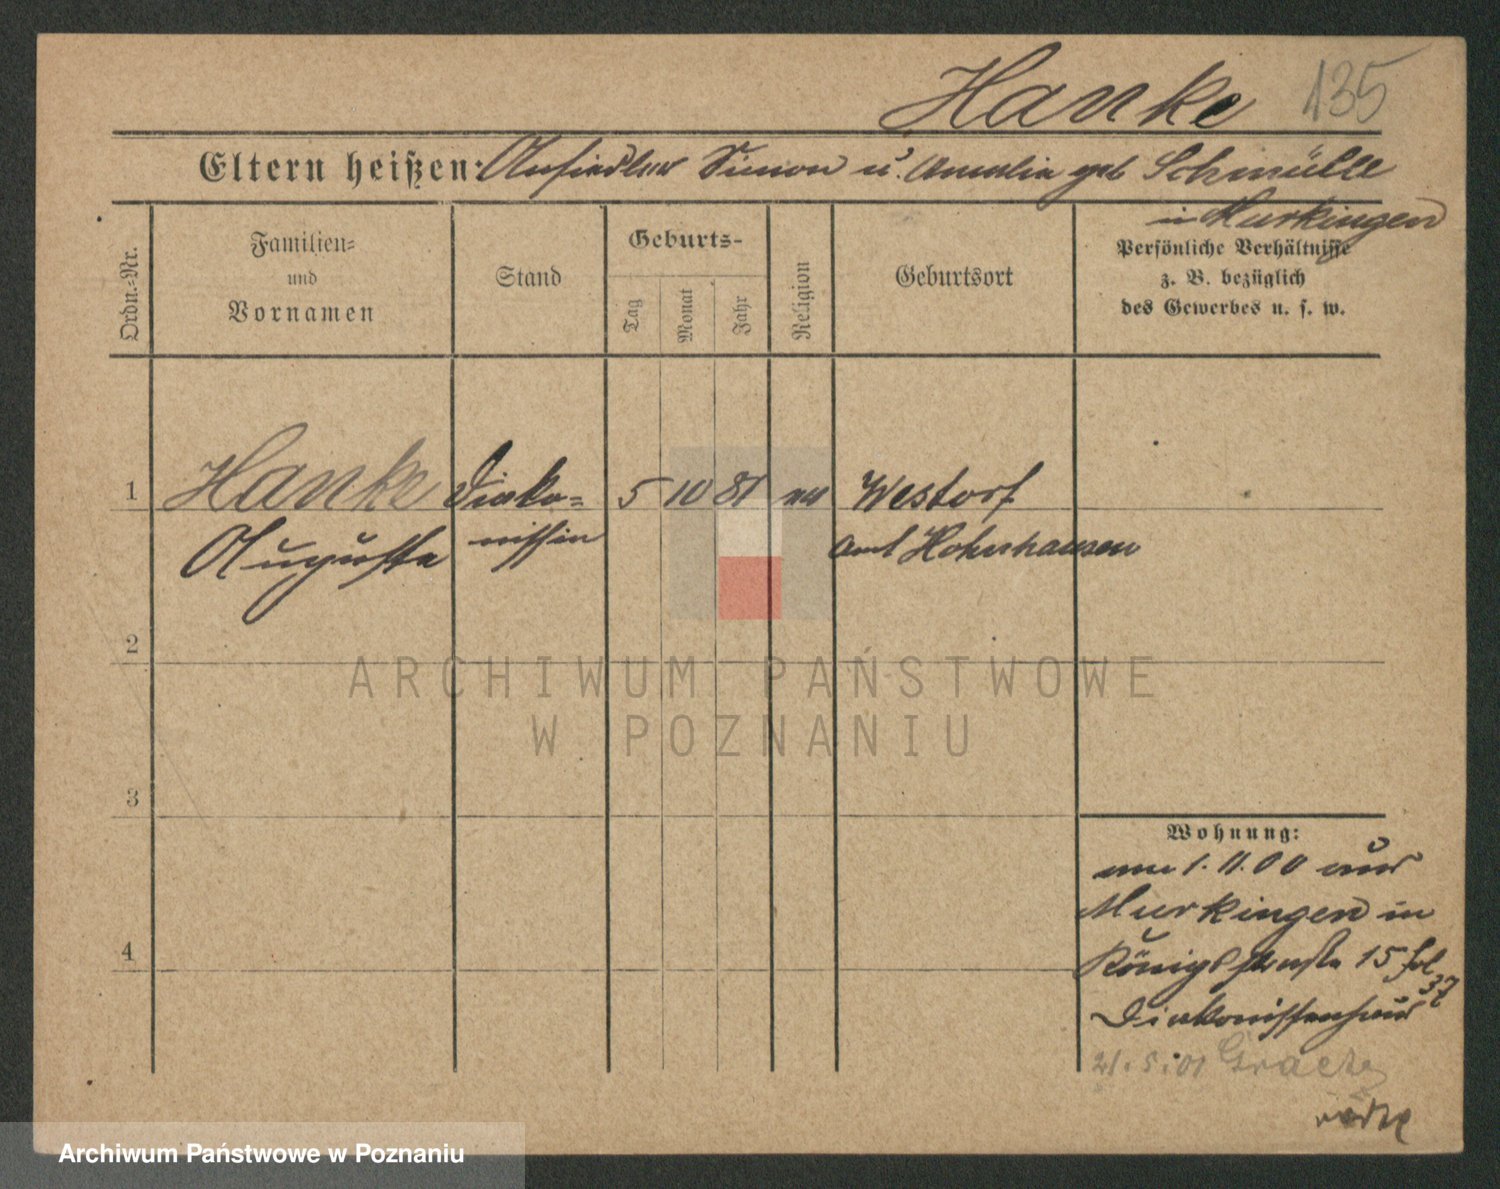 Hanke 135
Eltern heißen: Ansiedler Simon u. Amalia geb Schmülle
in Murkingen
Ordn.-Nr.
Familien-
und
Vornamen
Stand
Geburts-
Tag
Monat
Jahr
Religion
Geburtsort
Persönliche Verhältnisse
z. B. bezüglich
des Gewerbes u. s. w.
1 Hanke Diako- 5 10 81 Westorf
Auguste nissin Amt Hohenhausen
2
3
4
Wohnung:
1.11.00 aus
Murkingen in
Königstraße 15 fol 37
Diakonissenhaus
21.5.01 Graetz
ARCHIWUM PAŃSTWOWE
W POZNANIU
Archiwum Państwowe w Poznaniu